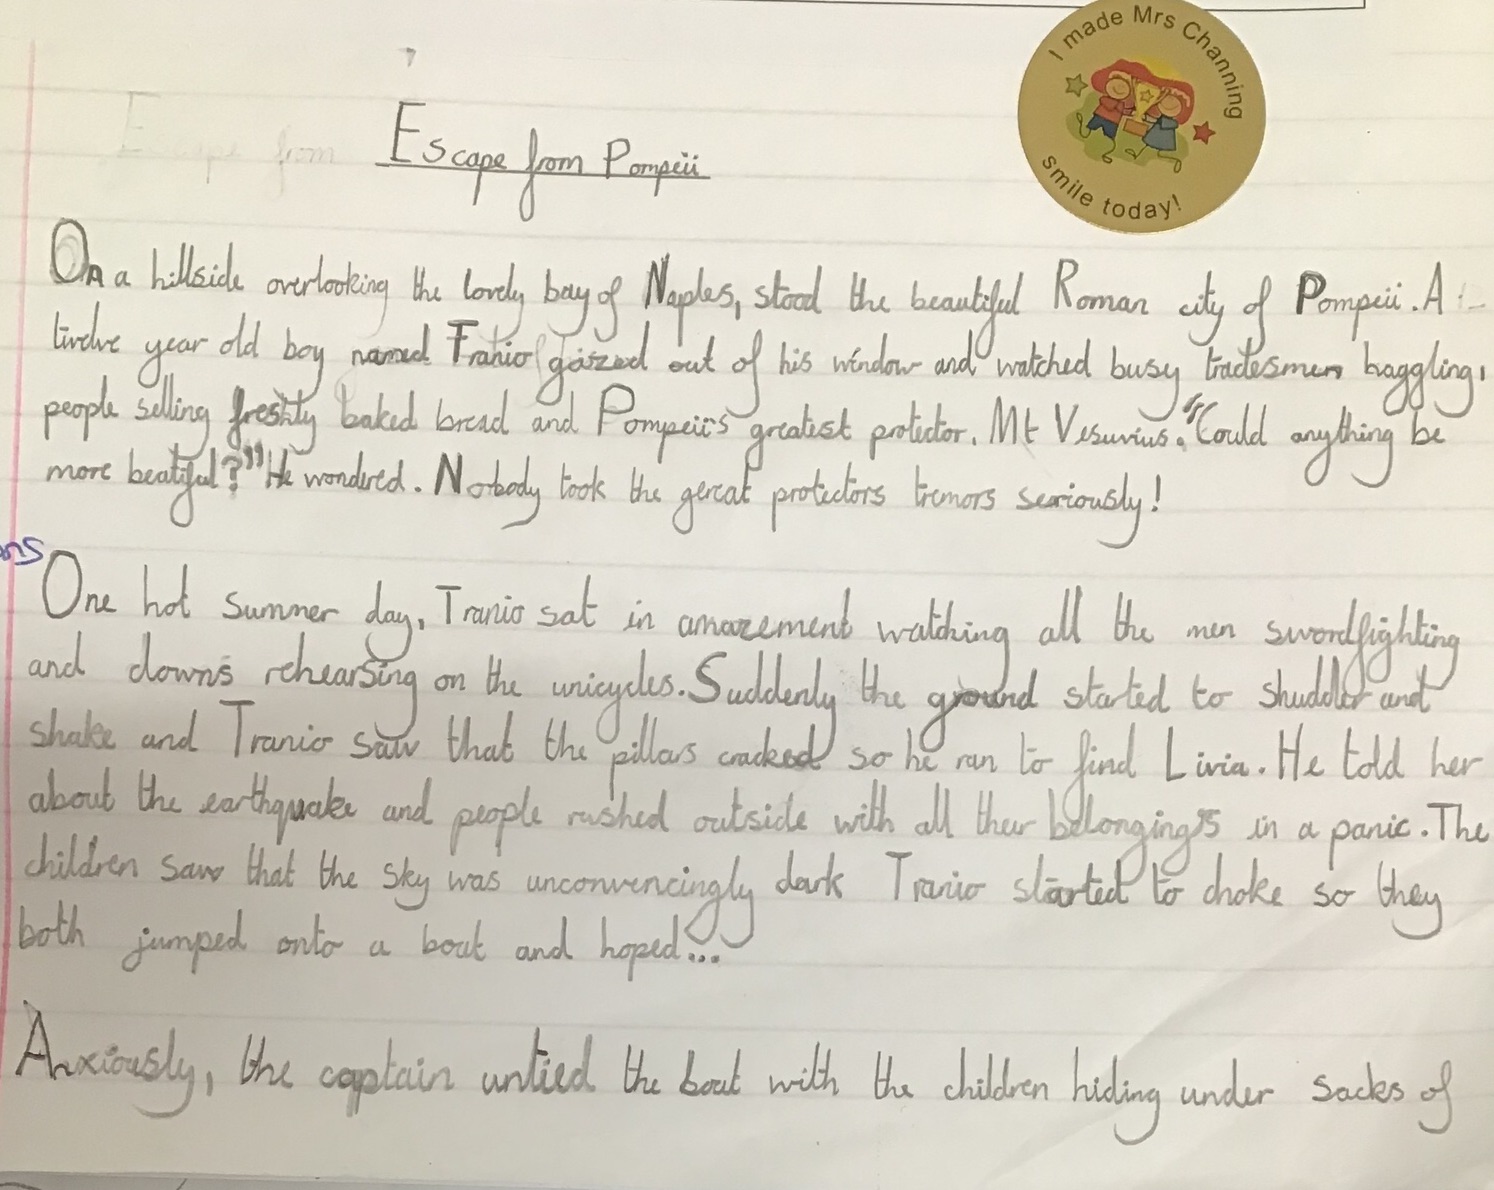 I made Mrs Channing
smile today!
Escape from
Escape from Pompeii
On a hillside overlooking the lovely bay of Naples, stood the beautiful Roman city of Pompeii. A
twelve year old boy named Tranio gaszed out of his window and watched busy tradesmen haggling,
people selling freshly baked bread and Pompeii's greatest protector, Mt Vesuvius. "Could anything be
more beatiful?" He wondered. Nobody took the gereat protectors tremors seriously!
ons
One hot summer day, Tranio sat in amazement watching all the men swordfighting
and clowns rehearsing on the unicycles. Suddenly the ground started to shudder and
shake and Tranio saw that the pillars cracked so he ran to find Livia. He told her
about the earthquake and people rushed outside with all their belongings in a panic. The
children saw that the sky was unconvencingly dark Tranio started to choke so they
both jumped onto a boat and hoped...
Anxiously, the captain untied the boat with the children hiding under sacks of